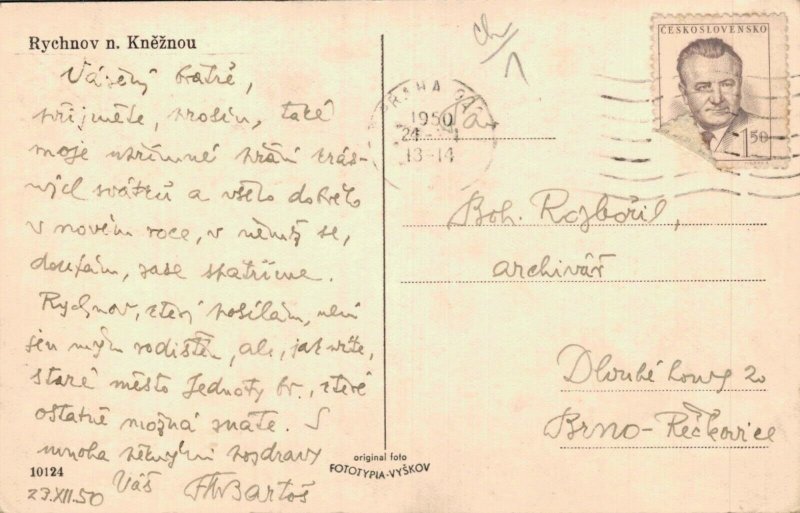 Rychnov n. Kněžnou
Vážený bratře,
přijměte, prosím, také
moje upřímné přání krás-
ných svátků a všeho dobrého
v novém roce, v němž se,
doufám, zase spatříme.
Rychnov, který posílám, není
jen mým rodištěm, ale, jak víte,
staré město Jednoty br., které
ostatně možná znáte. S
mnoha pěknými pozdravy
Váš FMBartoš
10124
23.XII.50
original foto
FOTOTYPIA-VYŠKOV
PRAHA
1950
24
13-14
ČESKOSLOVENSKO
1 50
Pán
Boh. Rozbořil,
archivář
Dlouhé hony 20
Brno-Řečkovice